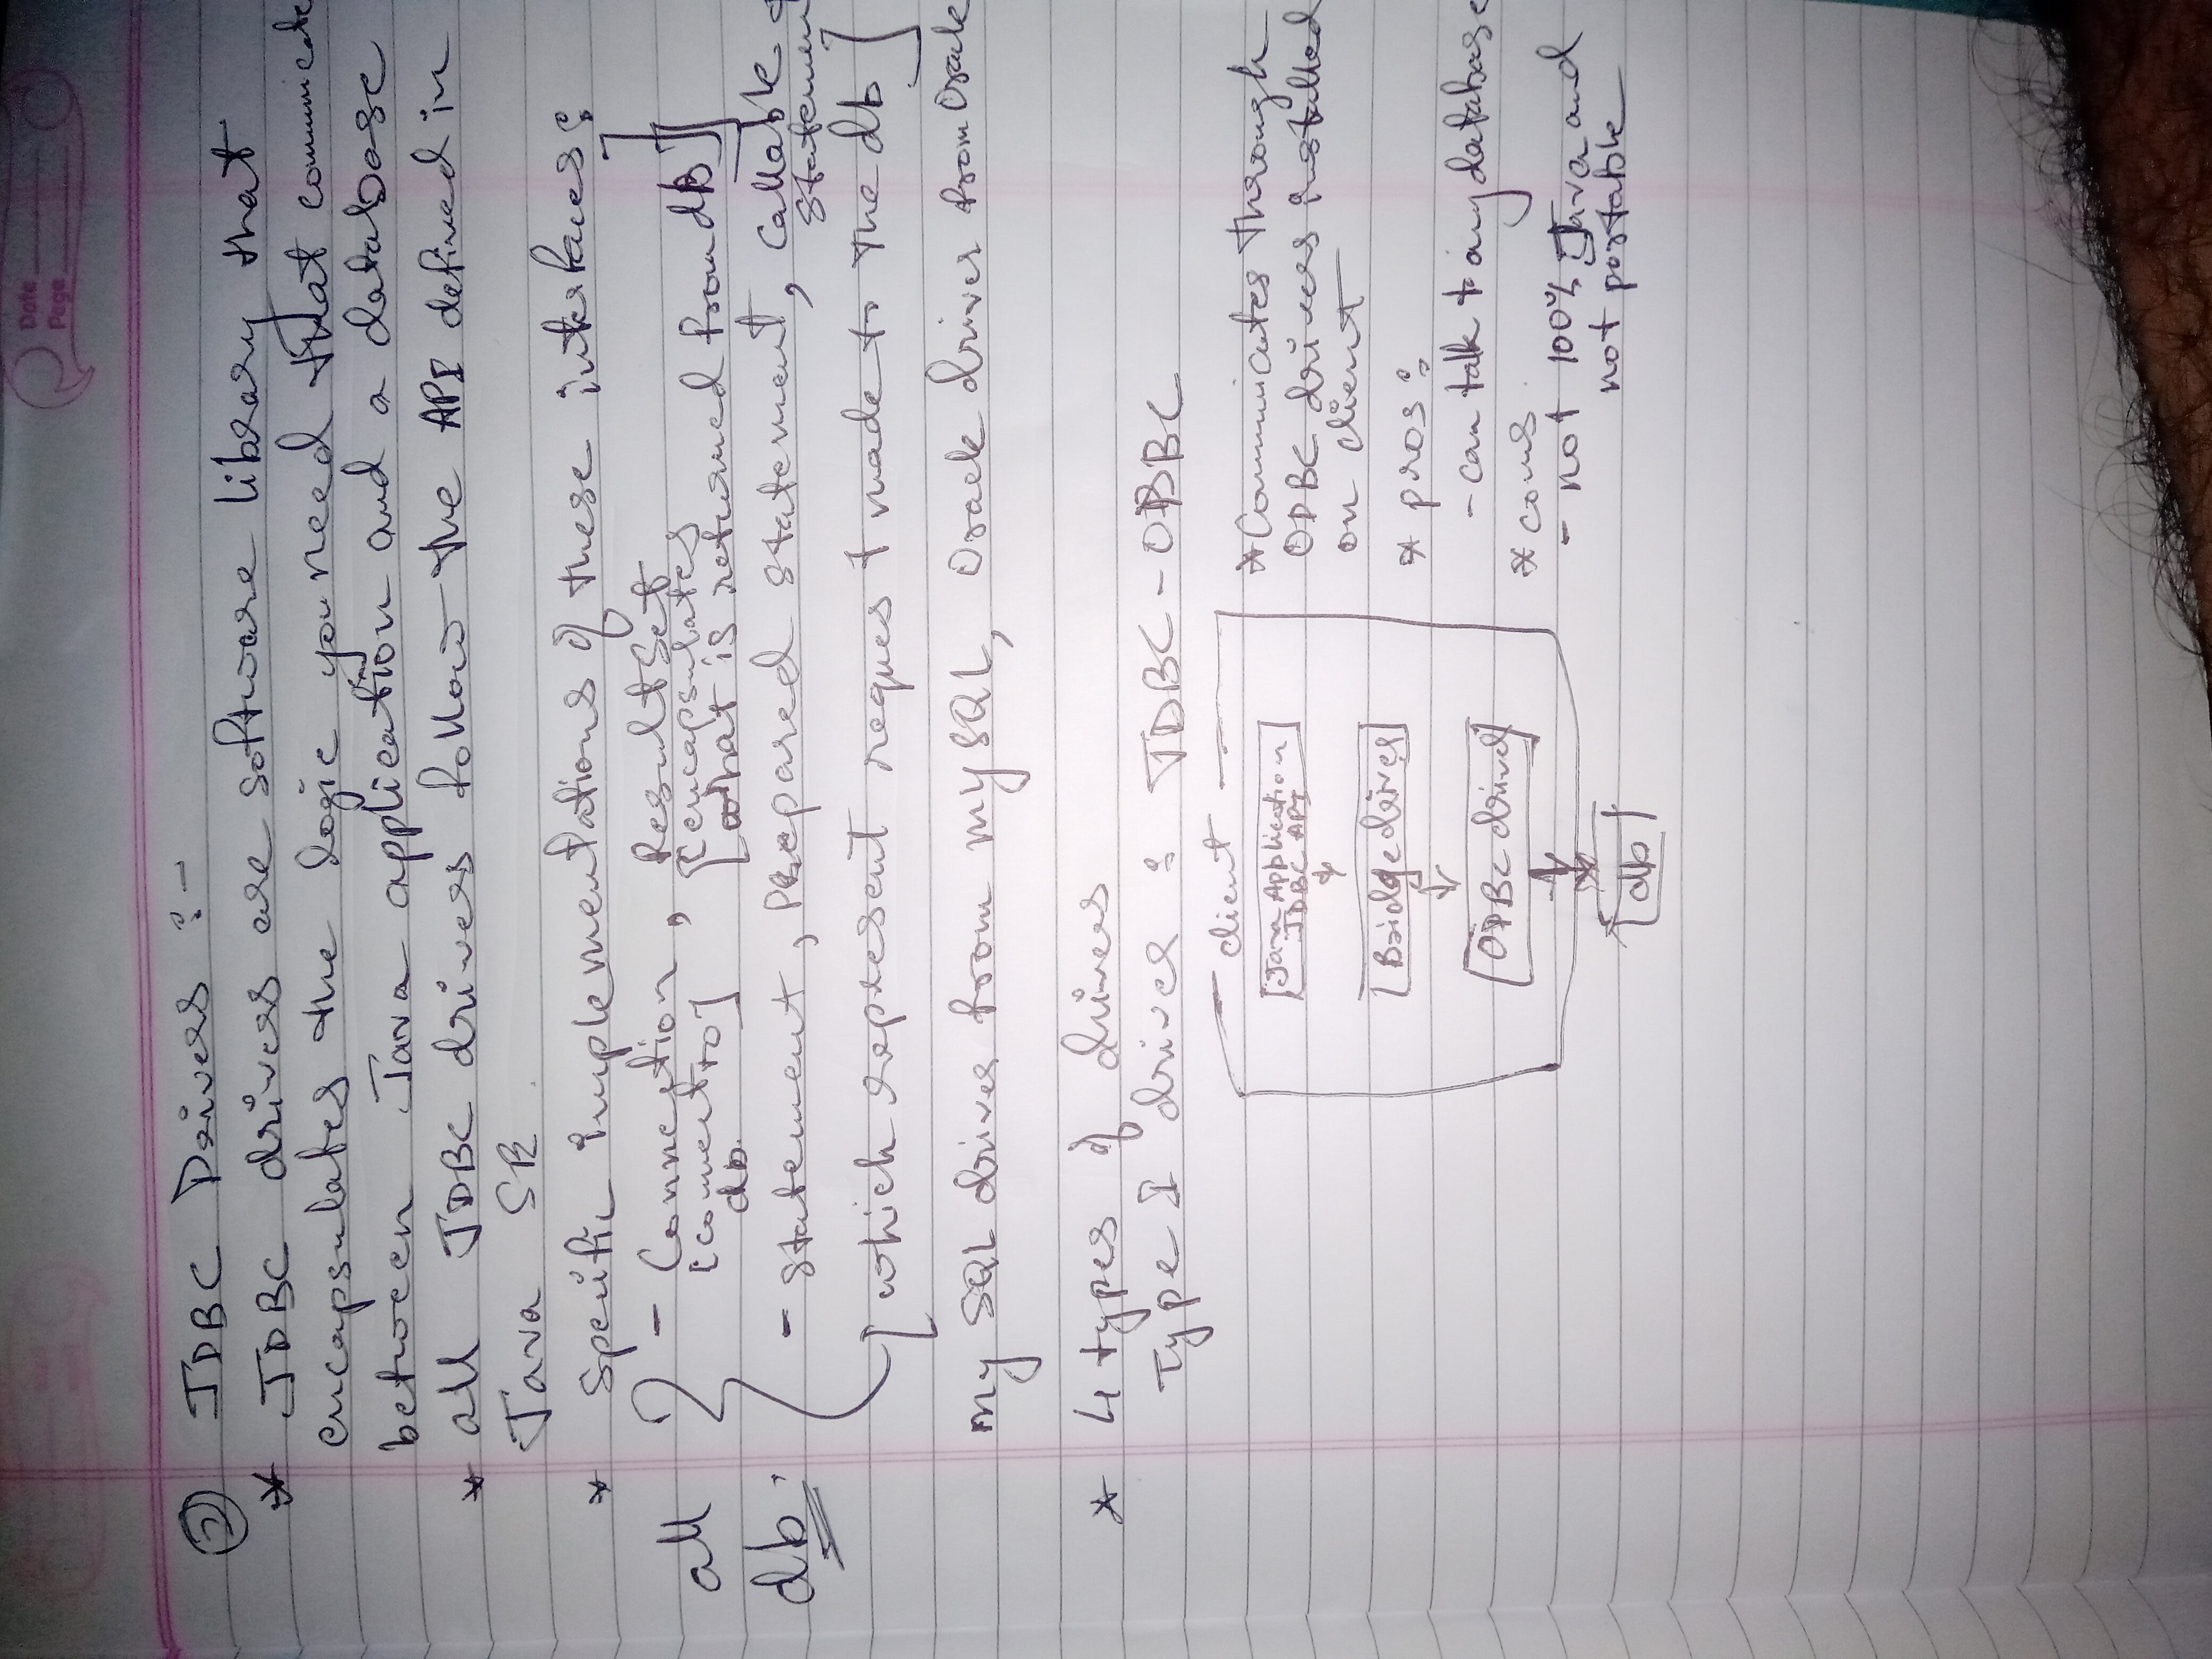 Date
Page
② JDBC Drivers :-
* JDBC drivers are software library that
encapsulates the logic you need that communicate
between Java application and a database
* all JDBC drivers follow the API defined in
Java SE.
* Specific implementations of these interfaces:
- Connection, ResultSet,
[connect to db] [encapsulates
what is returned from dB]
all db.
- Statement, Prepared Statement, Callable
Statement
[which represent request made to the db]
My SQL driver from MySQL, Oracle driver from Oracle
* 4 types of drivers
Type I driver : JDBC-ODBC
client
Java Application
JDBC API
Bridge driver
ODBC driver
db
* Communicates through
ODBC drivers installed
on client
* pros:
- can talk to any database
* cons.
- not 100% Java and
not portable